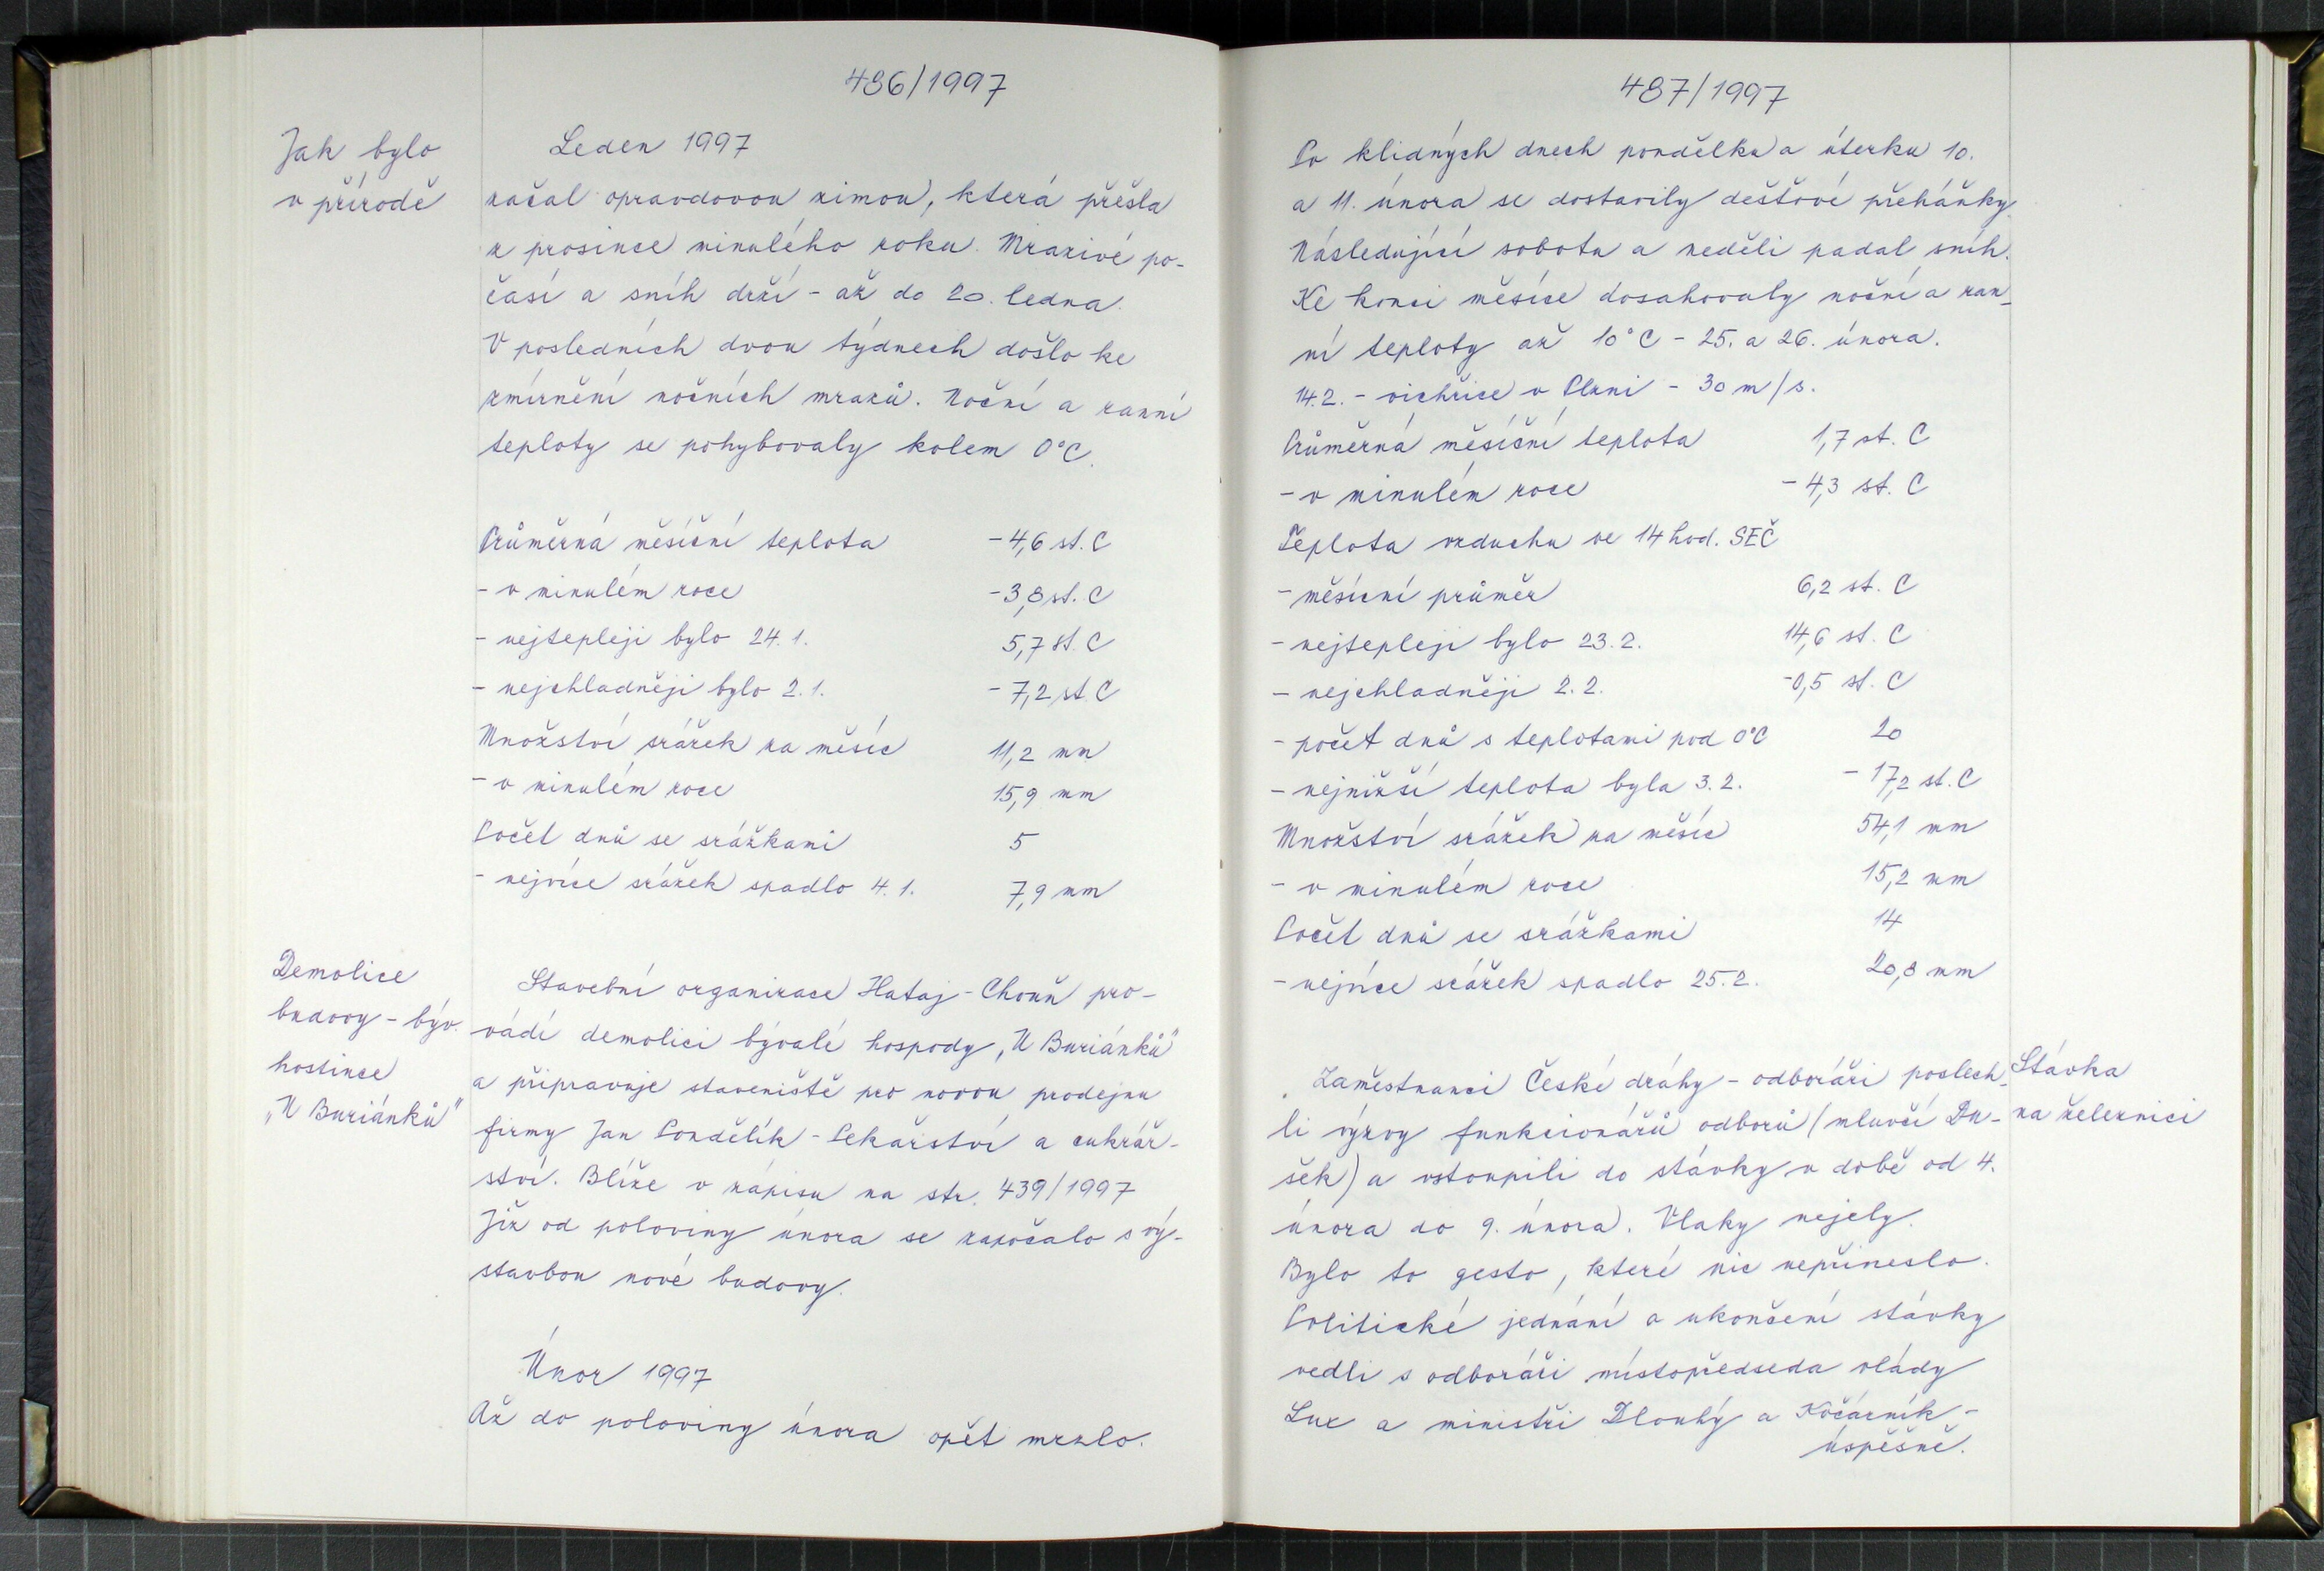 486/1997
Jak bylo
v přírodě
Leden 1997
začal opravdovou zimou, která přešla
z prosince minulého roku. Mrazivé po-
časí a sníh drží - až do 20. ledna.
V posledních dvou týdnech došlo ke
zmírnění nočních mrazů. Noční a ranní
teploty se pohybovaly kolem 0°C.
Průměrná měsíční teplota -4,6 st. C
- v minulém roce -3,8 st. C
- nejtepleji bylo 24. 1. 5,7 st. C
- nejchladněji bylo 2. 1. -7,2 st C
Množství srážek za měsíc 11,2 mm
- v minulém roce 15,9 mm
Počet dnů se srážkami 5
- nejvíce srážek spadlo 4. 1. 7,9 mm
Demolice
budovy - býv.
hostince
„U Buriánků"
Stavební organizace Hataj - Chouň pro-
vádí demolici bývalé hospody „U Buriánků"
a připravuje staveniště pro novou prodejnu
firmy Jan Pondělík - Pekařství a cukrář-
ství. Blíže v zápisu na str. 439/1997
Již od poloviny února se započalo s vý-
stavbou nové budovy.
Únor 1997
Až do poloviny února opět mrzlo.
487/1997
Po klidných dnech pondělku a úterku 10.
a 11. února se dostavily dešťové přeháňky.
Následující sobotu a neděli padal sníh.
Ke konci měsíce dosahovaly noční a ran-
ní teploty až 10°C - 25. a 26. února.
14. 2. - vichřice v Plzni - 30 m/s.
Průměrná měsíční teplota 1,7 st. C
- v minulém roce -4,3 st. C
Teplota vzduchu ve 14 hod. SEČ
- měsícní průměr 6,2 st. C
- nejtepleji bylo 23. 2. 14,6 st. C
- nejchladněji 2. 2. -0,5 st. C
- počet dnů s teplotami pod 0°C 20
- nejnižší teplota byla 3. 2. -17,2 st. C
Množství srážek za měsíc 54,1 mm
- v minulém roce 15,2 mm
Počet dnů se srážkami 14
- nejvíce srážek spadlo 25. 2. 20,8 mm
Stávka
na železnici
Zaměstnanci České dráhy - odboráři poslech-
li výzvy funkcionářů odborů (mluvčí Du-
šek) a vstoupili do stávky v době od 4.
února do 9. února. Vlaky nejely.
Bylo to gesto, které nic nepřineslo.
Politické jednání o ukončení stávky
vedli s odboráři místopředseda vlády
Lux a ministři Dlouhý a Kočárník -
úspěšně.